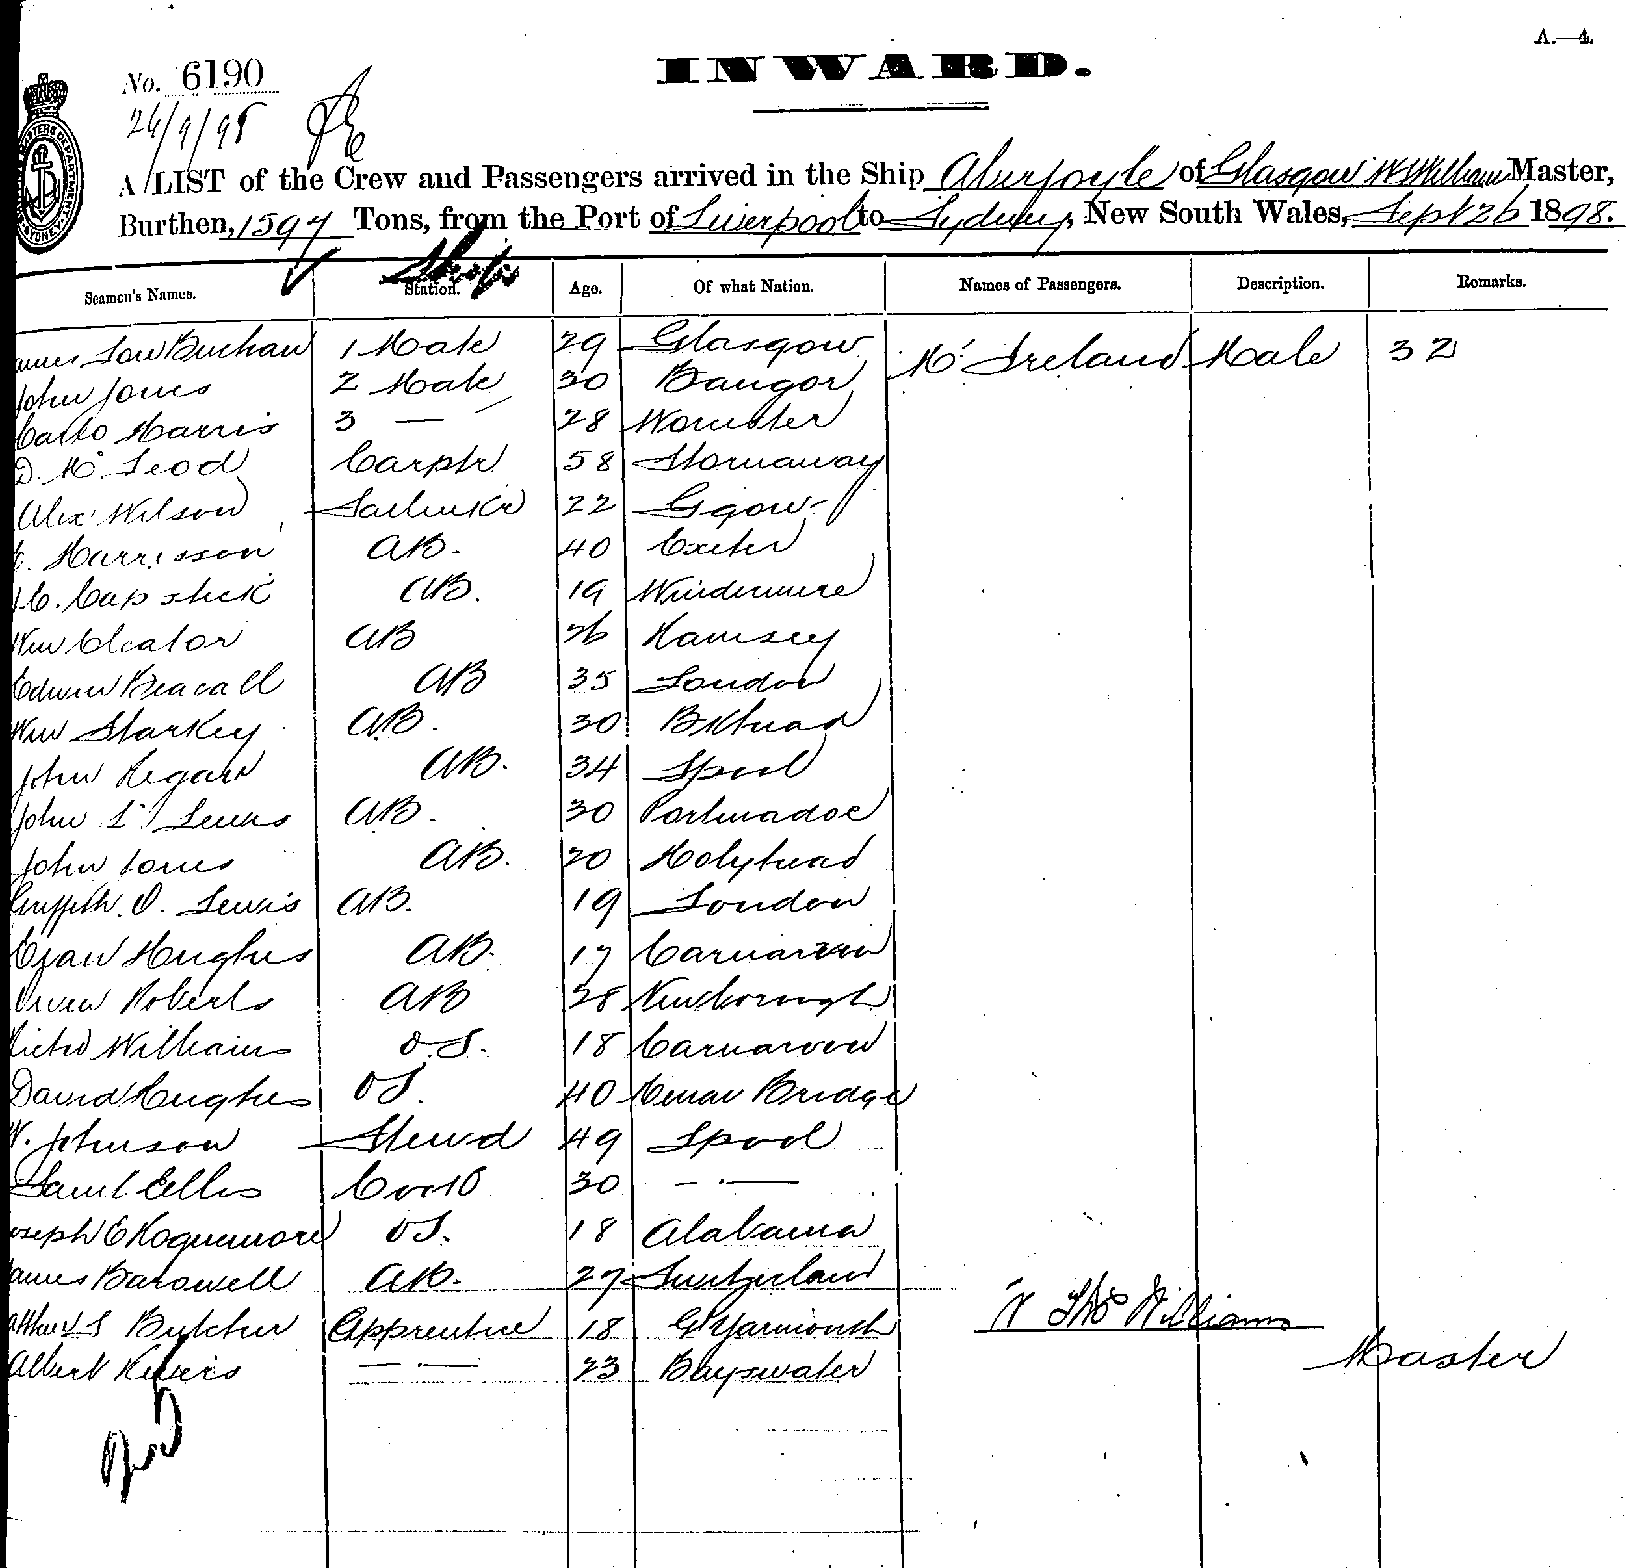 A.—4.
INWARD.
No. 6190
26/9/98
A LIST of the Crew and Passengers arrived in the Ship Aberfoyle of Glasgow W Williams Master,
Burthen, 1597 Tons, from the Port of Liverpool to Sydney, New South Wales, Sept 26 1898.
Seamen's Names. Station. Age. Of what Nation. Names of Passengers. Description. Remarks.
ames Low Buchan 1 Mate 29 Glasgow Mr Ireland Male 32
John Jones 2 Mate 30 Bangor
Harris 3 — 28 Worcester
D. McLeod Carptr 58 Stornaway
Alex Wilson Sailmkr 22 Ggow
Harrisson AB. 40 Exeter
Capstick AB. 19 Windermere
Wm Cleator AB 26 Ramsey
Edwin Beacall AB 35 London
Wm Starkey AB. 30 BKhead
John Regan AB. 34 Lpool
John L Lewis AB. 30 Portmadoc
John Jones AB. 20 Holyhead
Griffith. O. Lewis AB. 19 London
Evan Hughes AB. 17 Carnarvon
Owen Roberts AB 28 Newborough
Richd Williams O.S. 18 Carnarvon
David Hughes OS. 40 Menai Bridge
W. Johnson Stewd 49 Lpool
Saml Ellis Cook 30 — · —
oseph E Roquemore OS. 18 Alabama
ames Barowell AB. 27 Switzerland
S Butcher Apprentice 18 Gt Yarmouth
W Thos Williams
Albert Rivers — — 23 Bayswater
Master